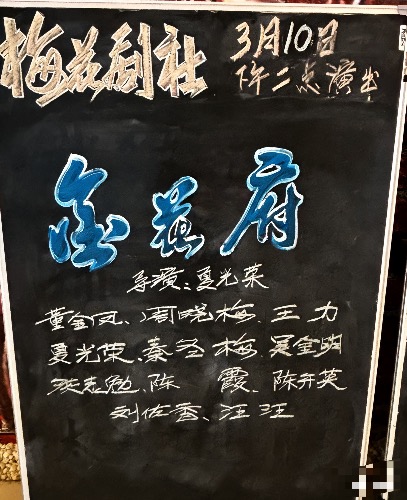 梅花剧社
3月10日
下午二点演出
金花府
导演:夏光荣
董金凤、周晓梅、王力
夏光荣、秦冬梅、吴金明
洪志勉、陈霞、陈开英
刘佐香、汪汪